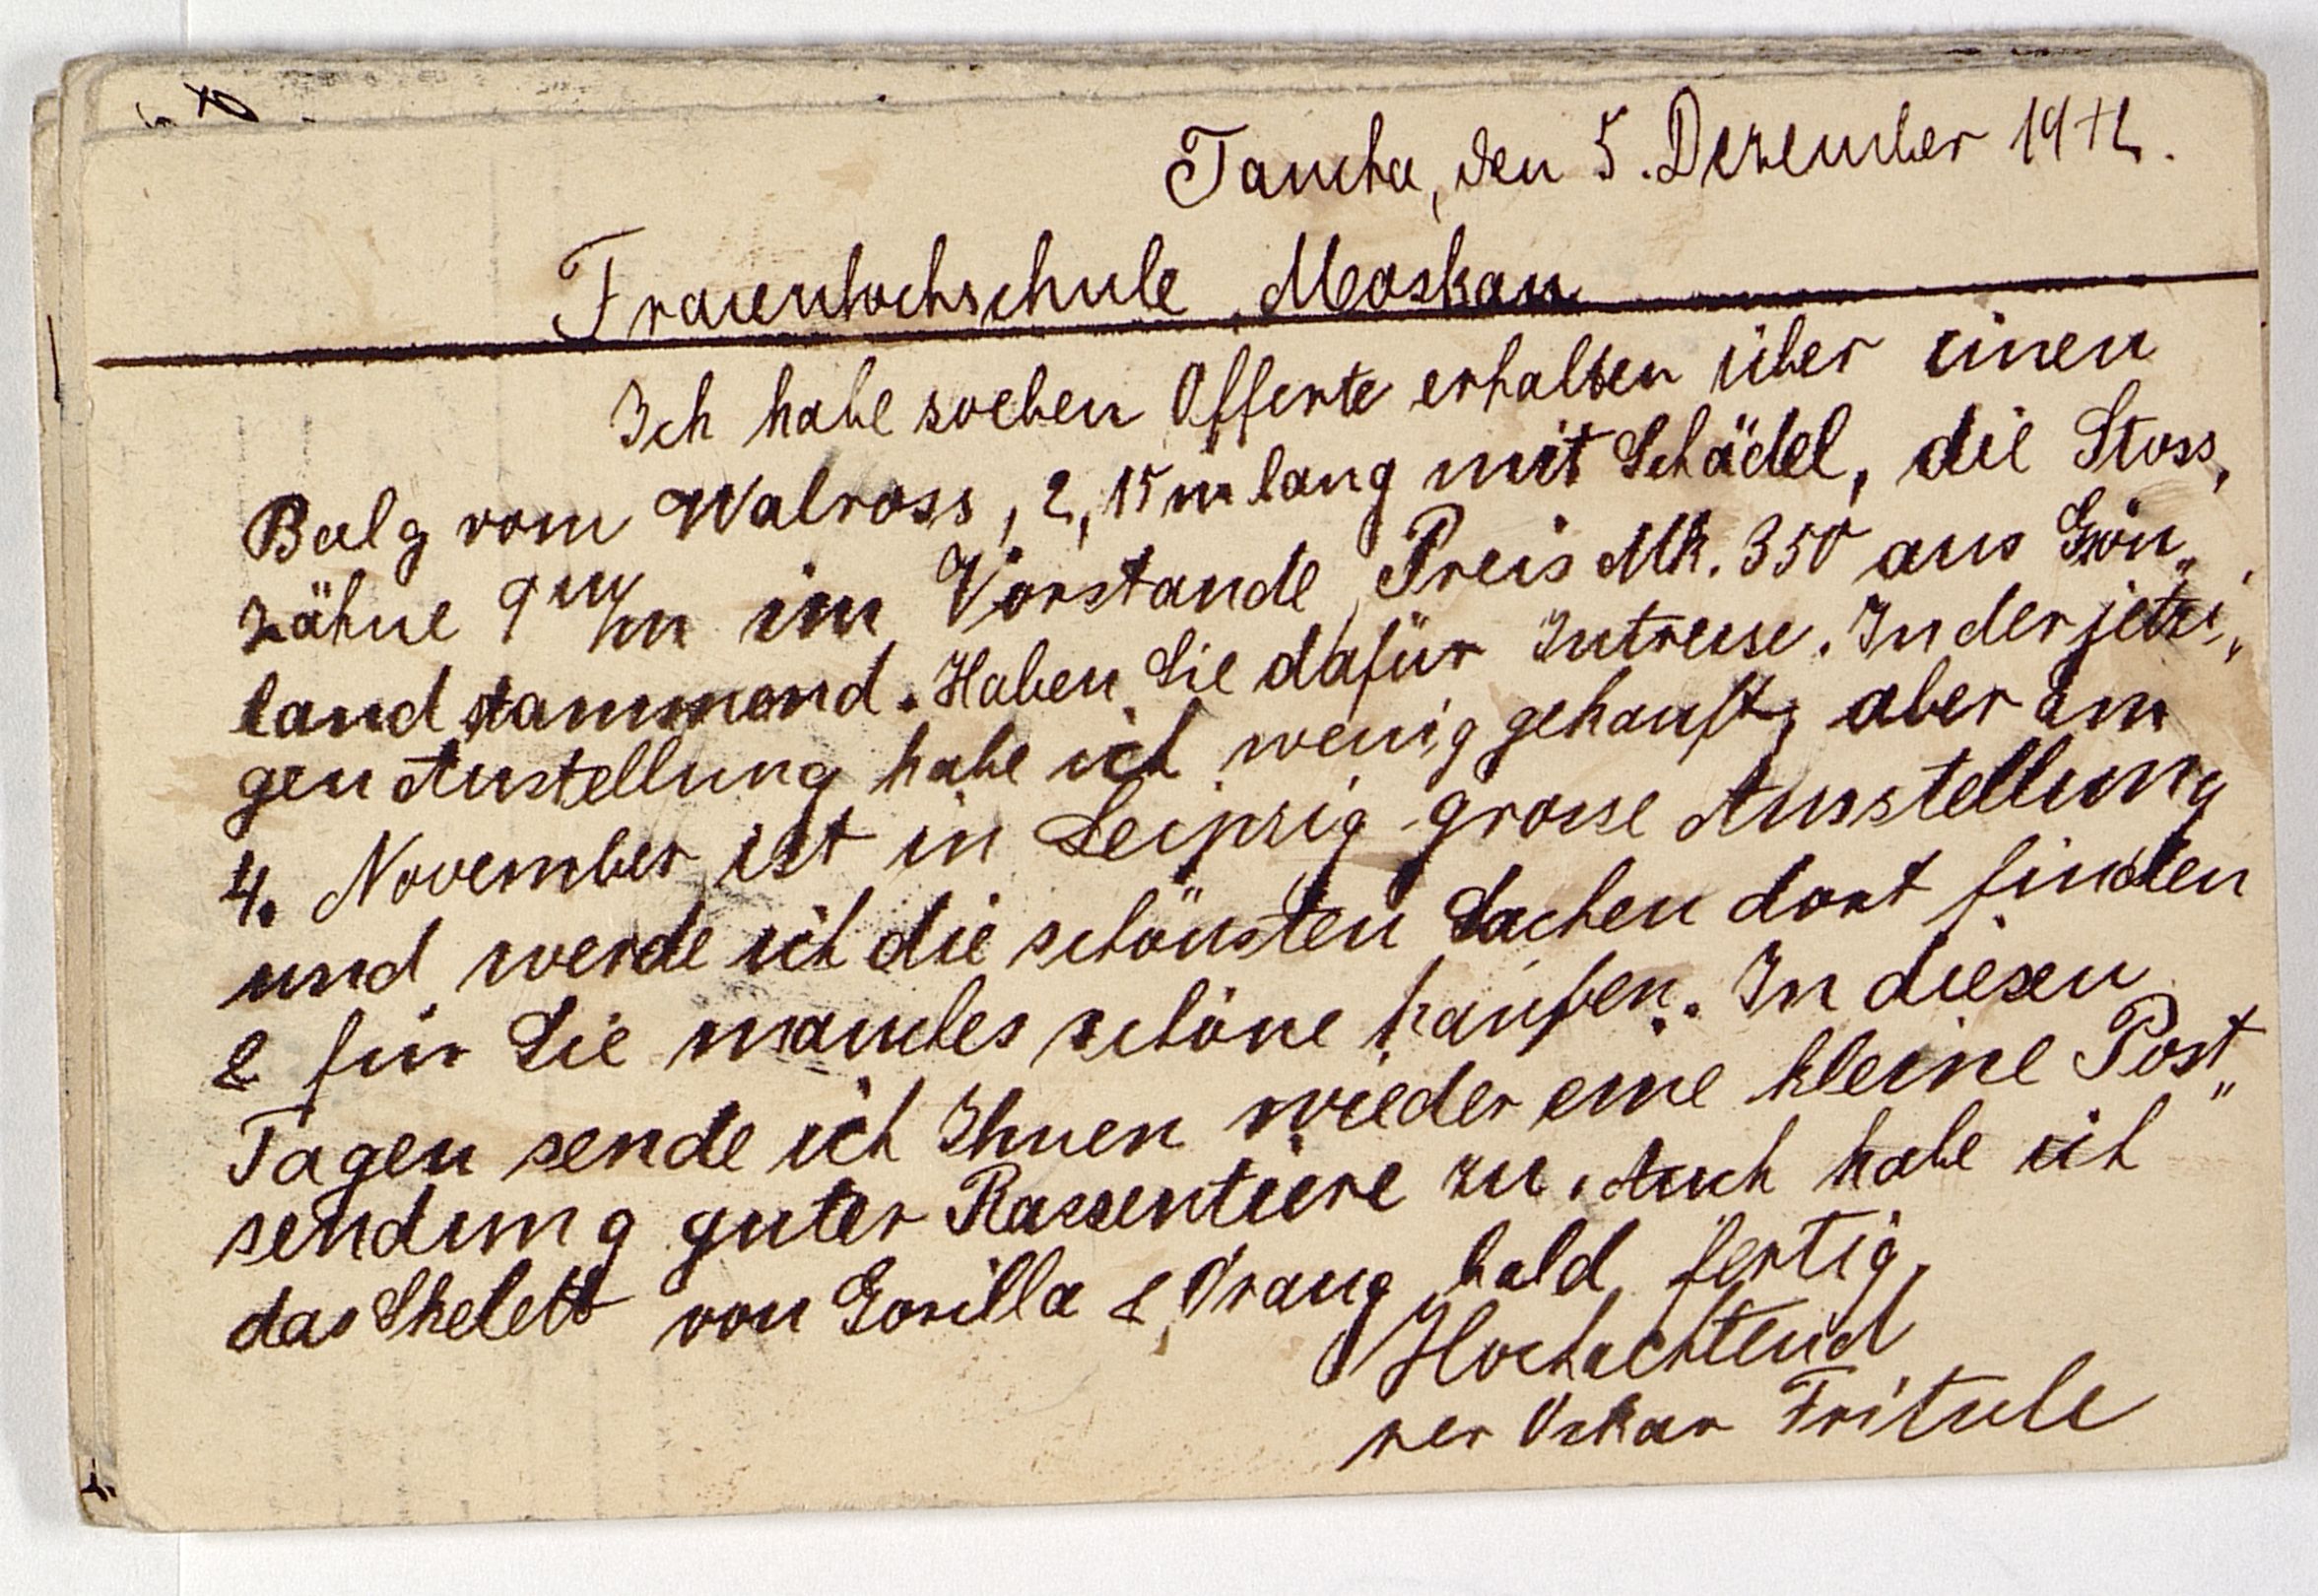 Taucha, den 5. Dezember 1912.
Frauenhochschule, Moskau
Ich habe soeben Offerte erhalten über einen
Balg vom Walross, 2,15 m lang mit Schädel, die Stoss,
zähne 9 m/m im Vorstande, Preis Mk. 350 aus Grön„
land stammend. Haben Sie dafür Intresse. In der jetzi„
gen Austellung habe ich wenig gekauft, aber am
4. November ist in Leipzig grosse Ausstellung
und werde ich die schönsten Sachen dort finden
& für Sie manches schöne kaufen. In diesen
Tagen sende ich Ihnen wieder eine kleine Post„
sendung guter Rassentiere zu. Auch habe ich
das Skelett von Gorilla & Orang bald fertig,
Hochachtend
per Oskar Fritsche